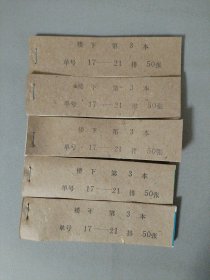 楼下 第 3 本
单号 17——21 排 50张
楼下 第 3 本
单号 17——21 排 50张
楼下 第 3 本
单号 17——21 排 50张
楼下 第 3 本
单号 17——21 排 50张
楼下 第 3 本
单号 17——21 排 50张